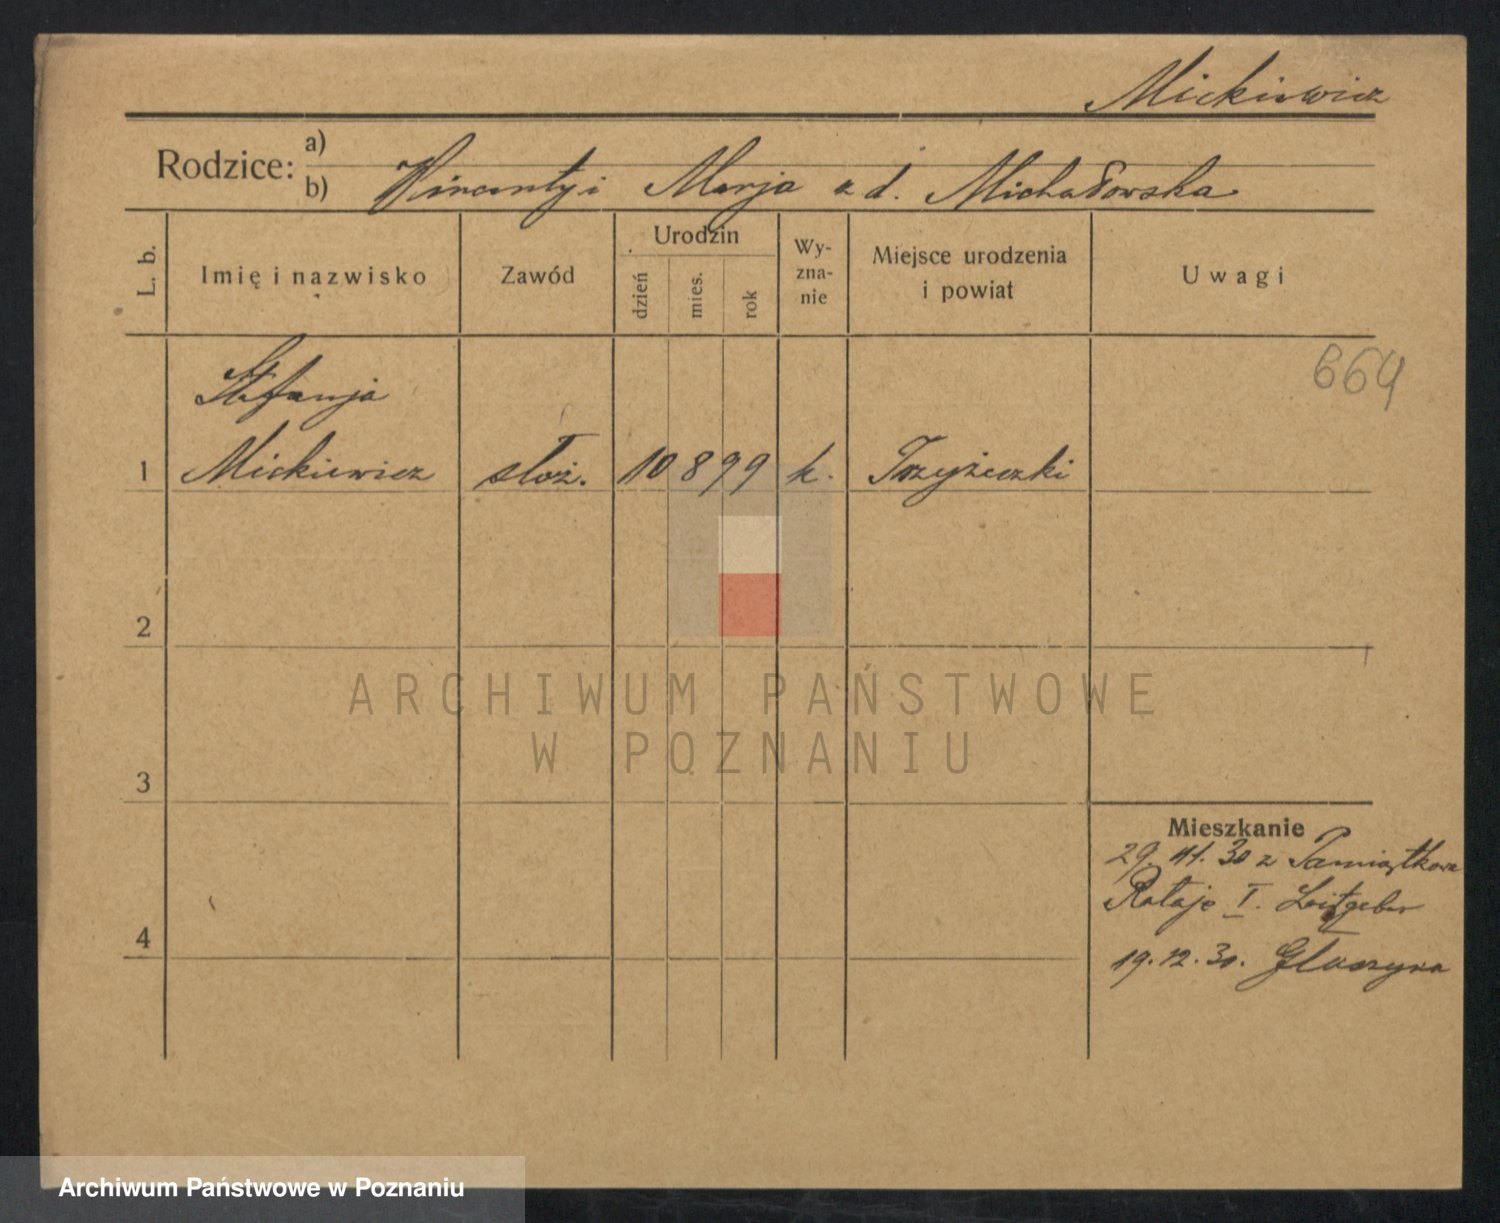 Mickiewicz
Rodzice:
a)
b) Wincenty i Marja z d. Michałowska
L. b.
Imię i nazwisko
Zawód
Urodzin
dzień
mies.
rok
Wy-
zna-
nie
Miejsce urodzenia
i powiat
Uwagi
664
Stefanja
1 Mickiewicz służ. 10 8 99 k. Trzyżeczki
2
3
4
Mieszkanie
29. 11. 30 z Pamiątkowa
Rataje I. Leitgeber
19. 12. 30. Głuszyna
ARCHIWUM PAŃSTWOWE
W POZNANIU
Archiwum Państwowe w Poznaniu